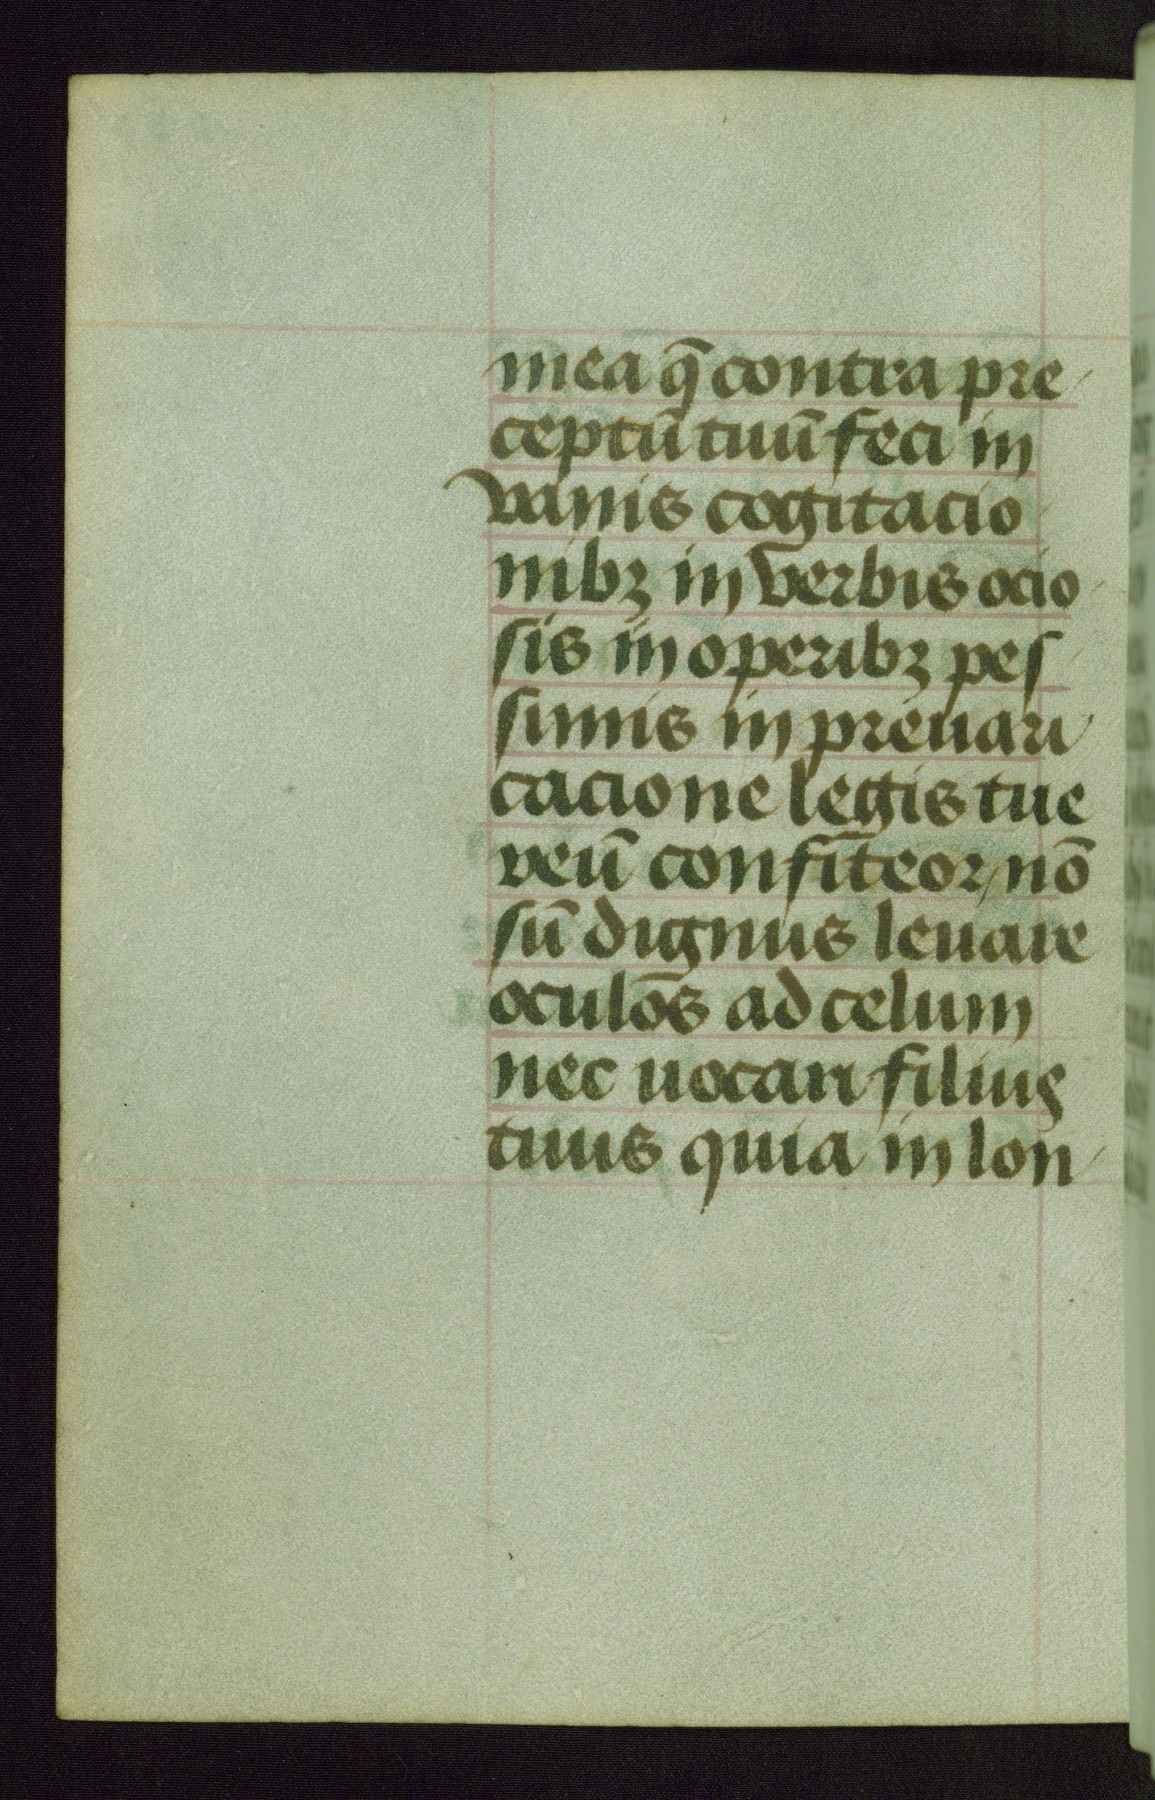 mea q̄ contra pre
ceptū tuū feci in
vanis cogitacio
nibꝫ in verbis ocio
sis in operibꝫ pes
simis in preuari
cacione legis tue
reū confiteor nō
sū dignus leuare
oculōs ad celum
nec uocari filius
tuus quia in lon